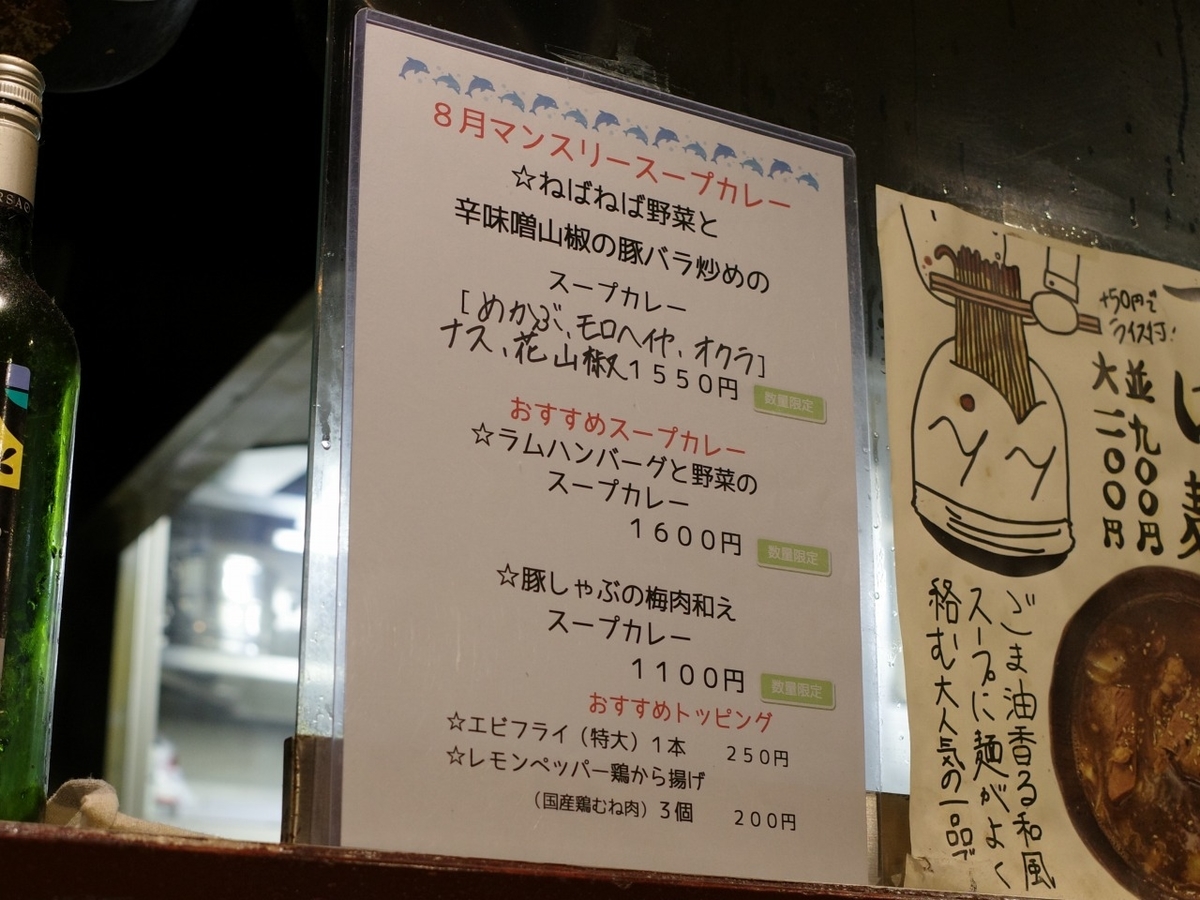 8月マンスリースープカレー
☆ねばねば野菜と
辛味噌山椒の豚バラ炒めの
スープカレー
[めかぶ、モロヘイヤ、オクラ]
ナス、花山椒 1550円
数量限定
おすすめスープカレー
☆ラムハンバーグと野菜の
スープカレー
1600円
数量限定
☆豚しゃぶの梅肉和え
スープカレー
1100円
数量限定
おすすめトッピング
☆エビフライ（特大）1本 250円
☆レモンペッパー鶏から揚げ
（国産鶏むね肉）3個 200円
+50円で
ライス付!
並九〇〇円
大一二〇〇円
ごま油香る和風
スープに麺がよく
絡む大人気の一品で